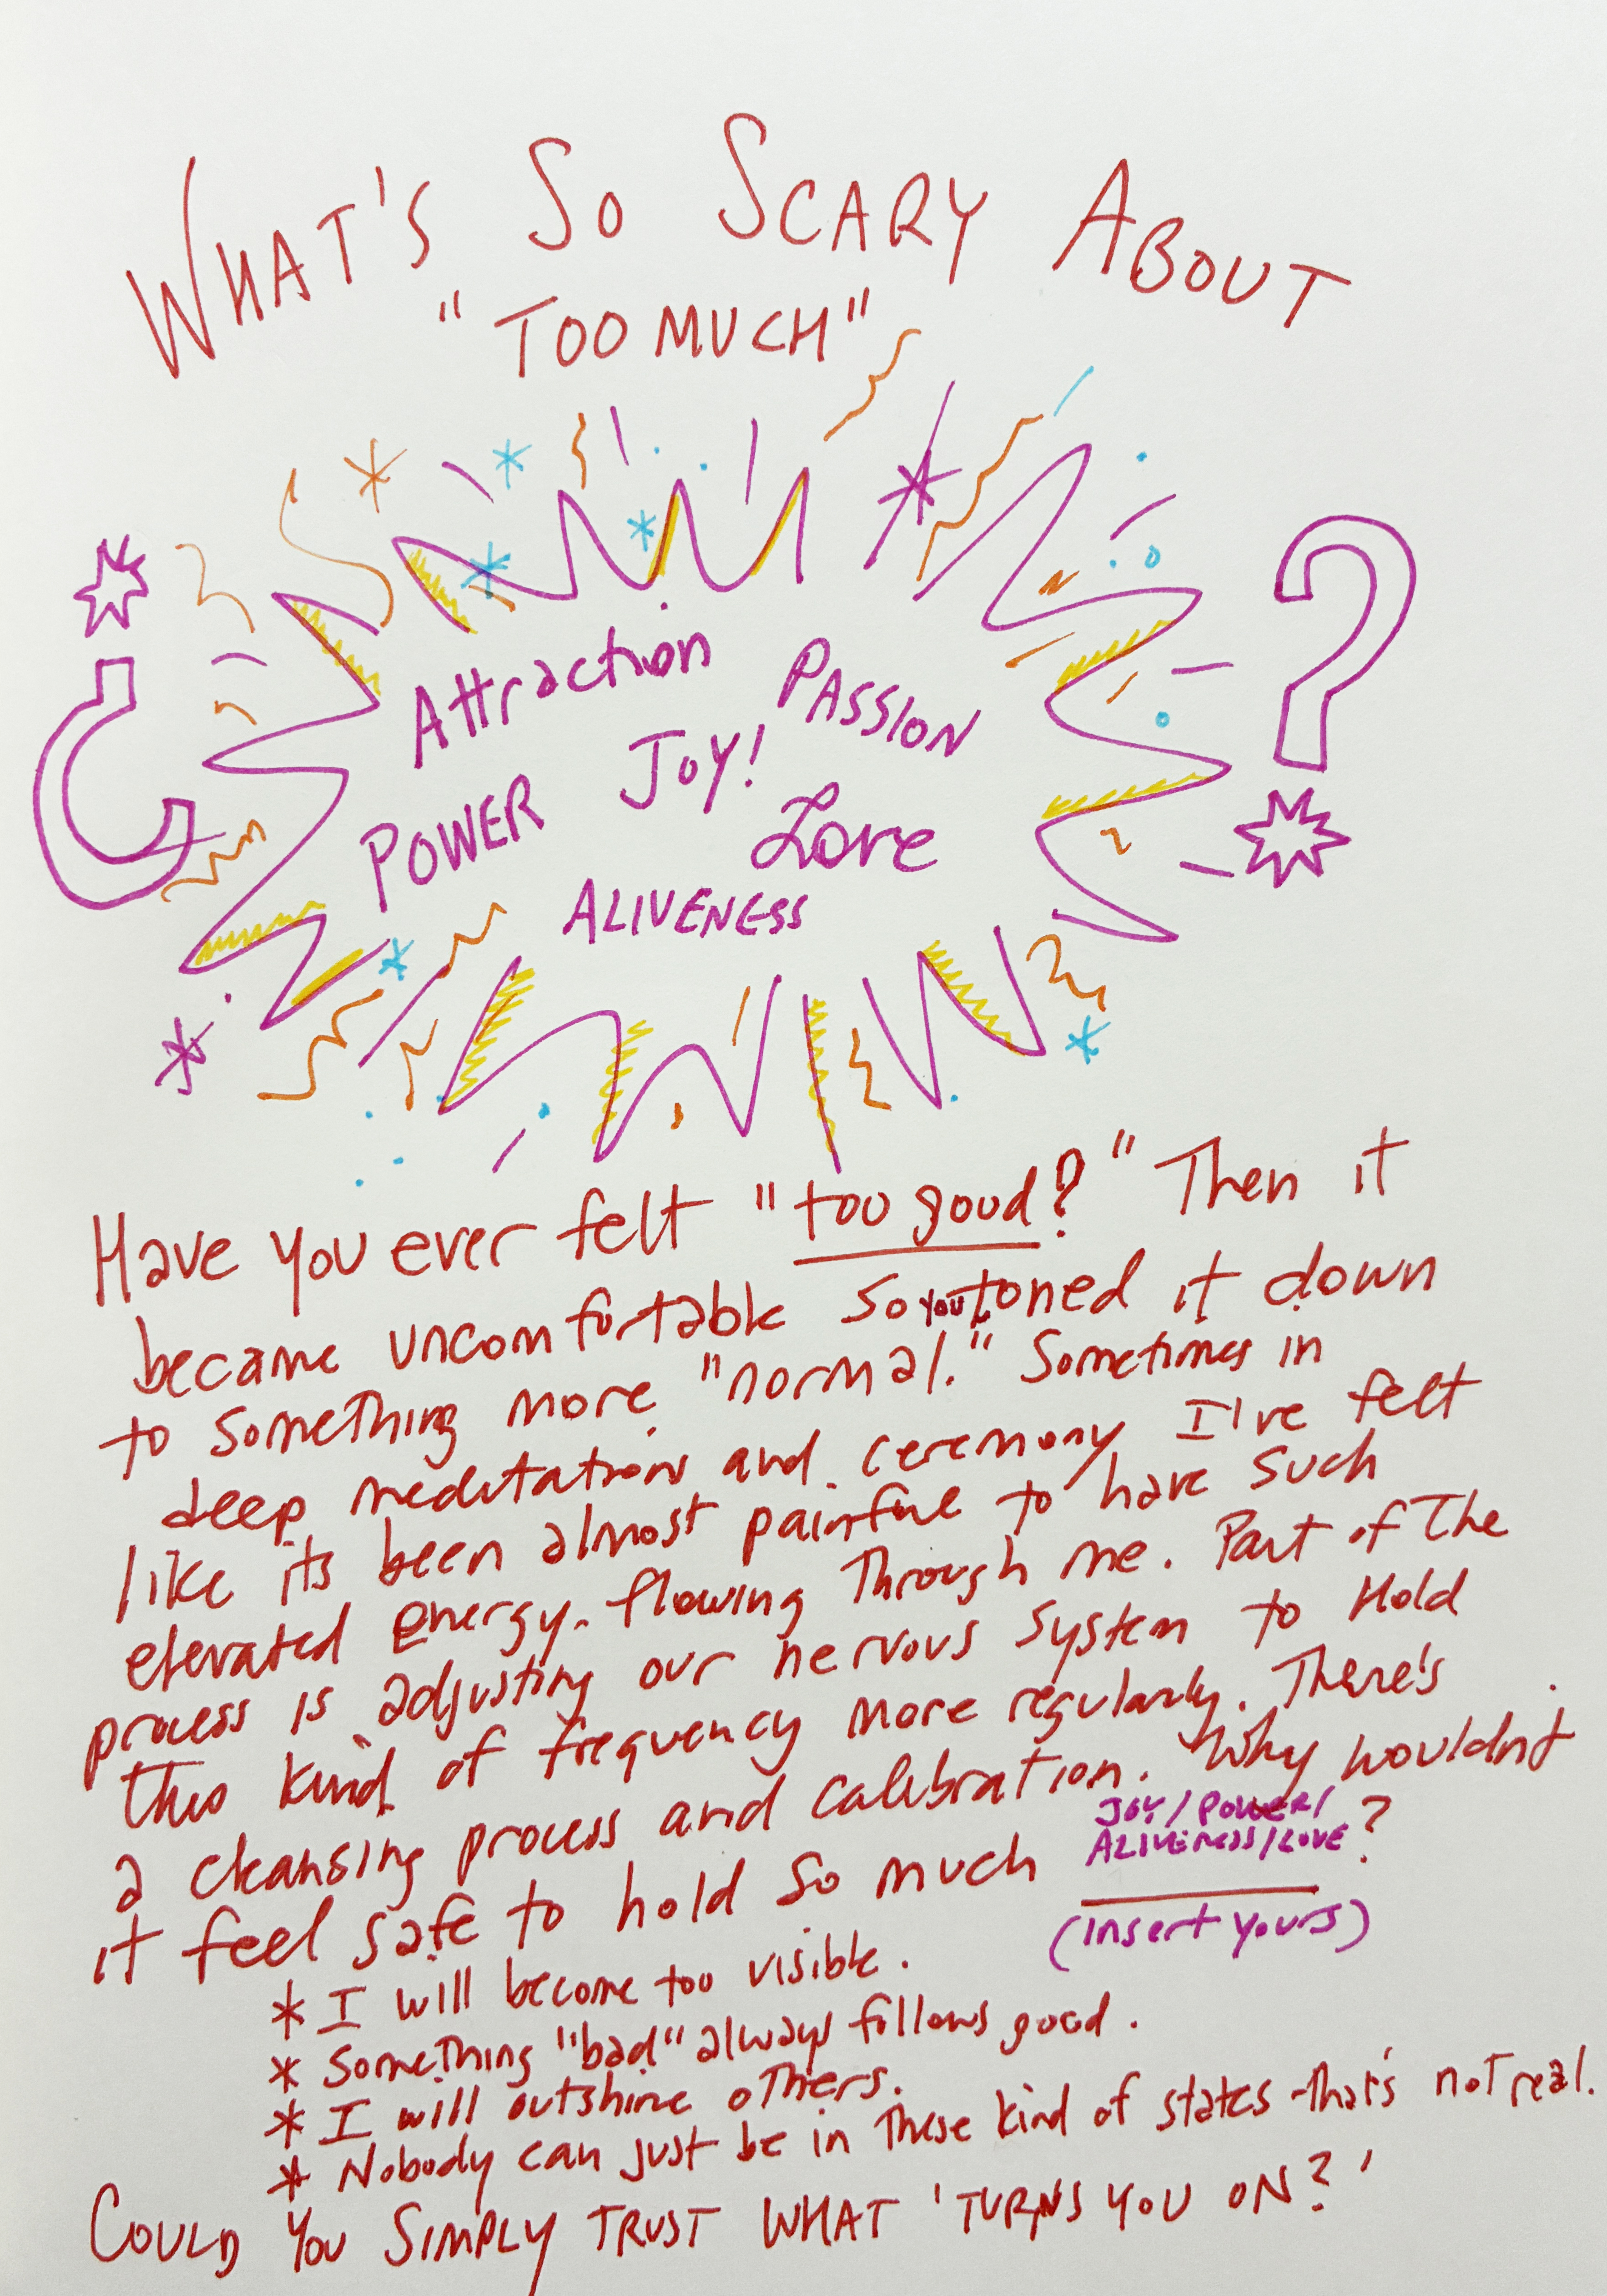 WHAT'S SO SCARY ABOUT
"TOO MUCH"
Attraction
PASSION
JOY!
POWER
Love
ALIVENESS
?
Have you ever felt "too good?" Then it
became uncomfortable so you toned it down
to something more "normal." Sometimes in
deep meditations and ceremony I've felt
like its been almost painful to have such
elevated energy flowing through me. Part of the
process is adjusting our nervous system to hold
this kind of frequency more regularly. There's
a cleansing process and calibration. Why wouldn't
it feel safe to hold so much JOY/POWER/
ALIVENESS/LOVE?
(insert yours)
* I will become too visible.
* Something "bad" always follows good.
* I will outshine others.
* Nobody can just be in these kind of states - that's not real.
COULD YOU SIMPLY TRUST WHAT 'TURNS YOU ON?'